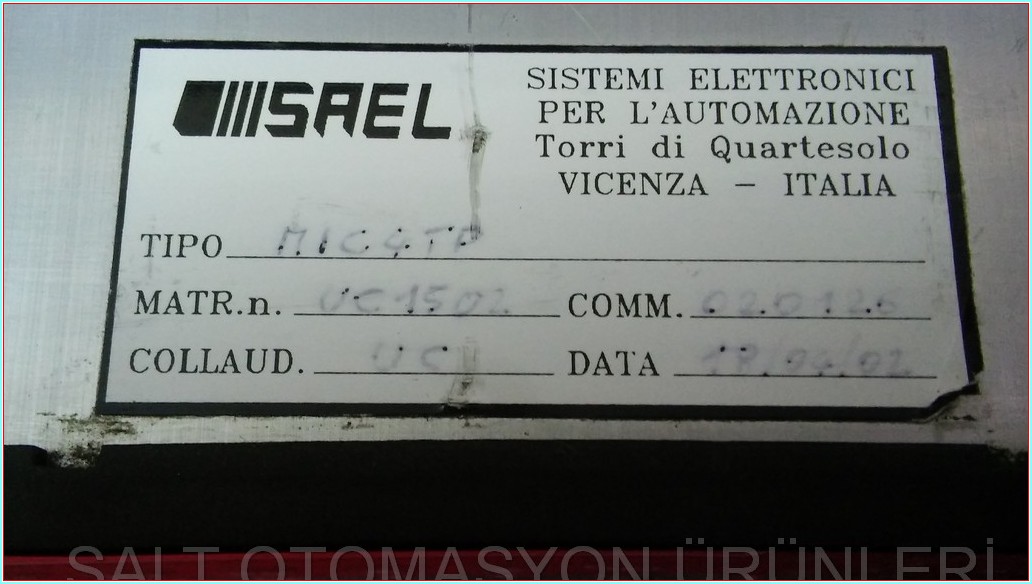 SAEL
SISTEMI ELETTRONICI
PER L'AUTOMAZIONE
Torri di Quartesolo
VICENZA – ITALIA
TIPO
MATR.n. UC1502 COMM.
COLLAUD. DATA
SALT OTOMASYON ÜRÜNLERİ